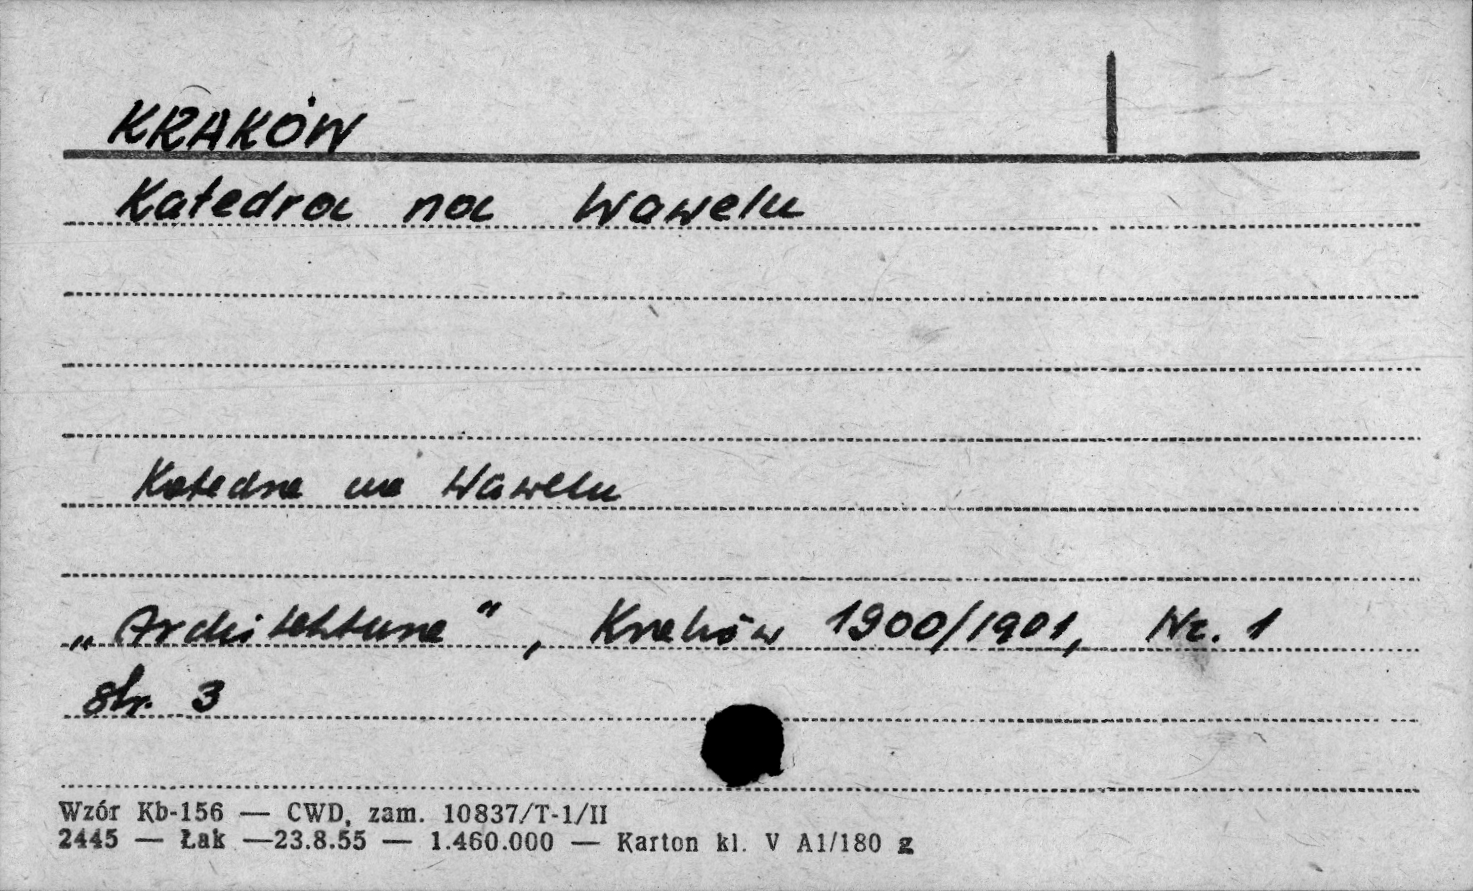 KRAKÓW
Katedra na Wawelu
Katedra na Wawelu
„Architektura", Kraków 1900/1901, Nr. 1
str. 3
Wzór Kb-156 — CWD, zam. 10837/T-1/II
2445 — Łak —23.8.55 — 1.460.000 — Karton kl. V A1/180 g